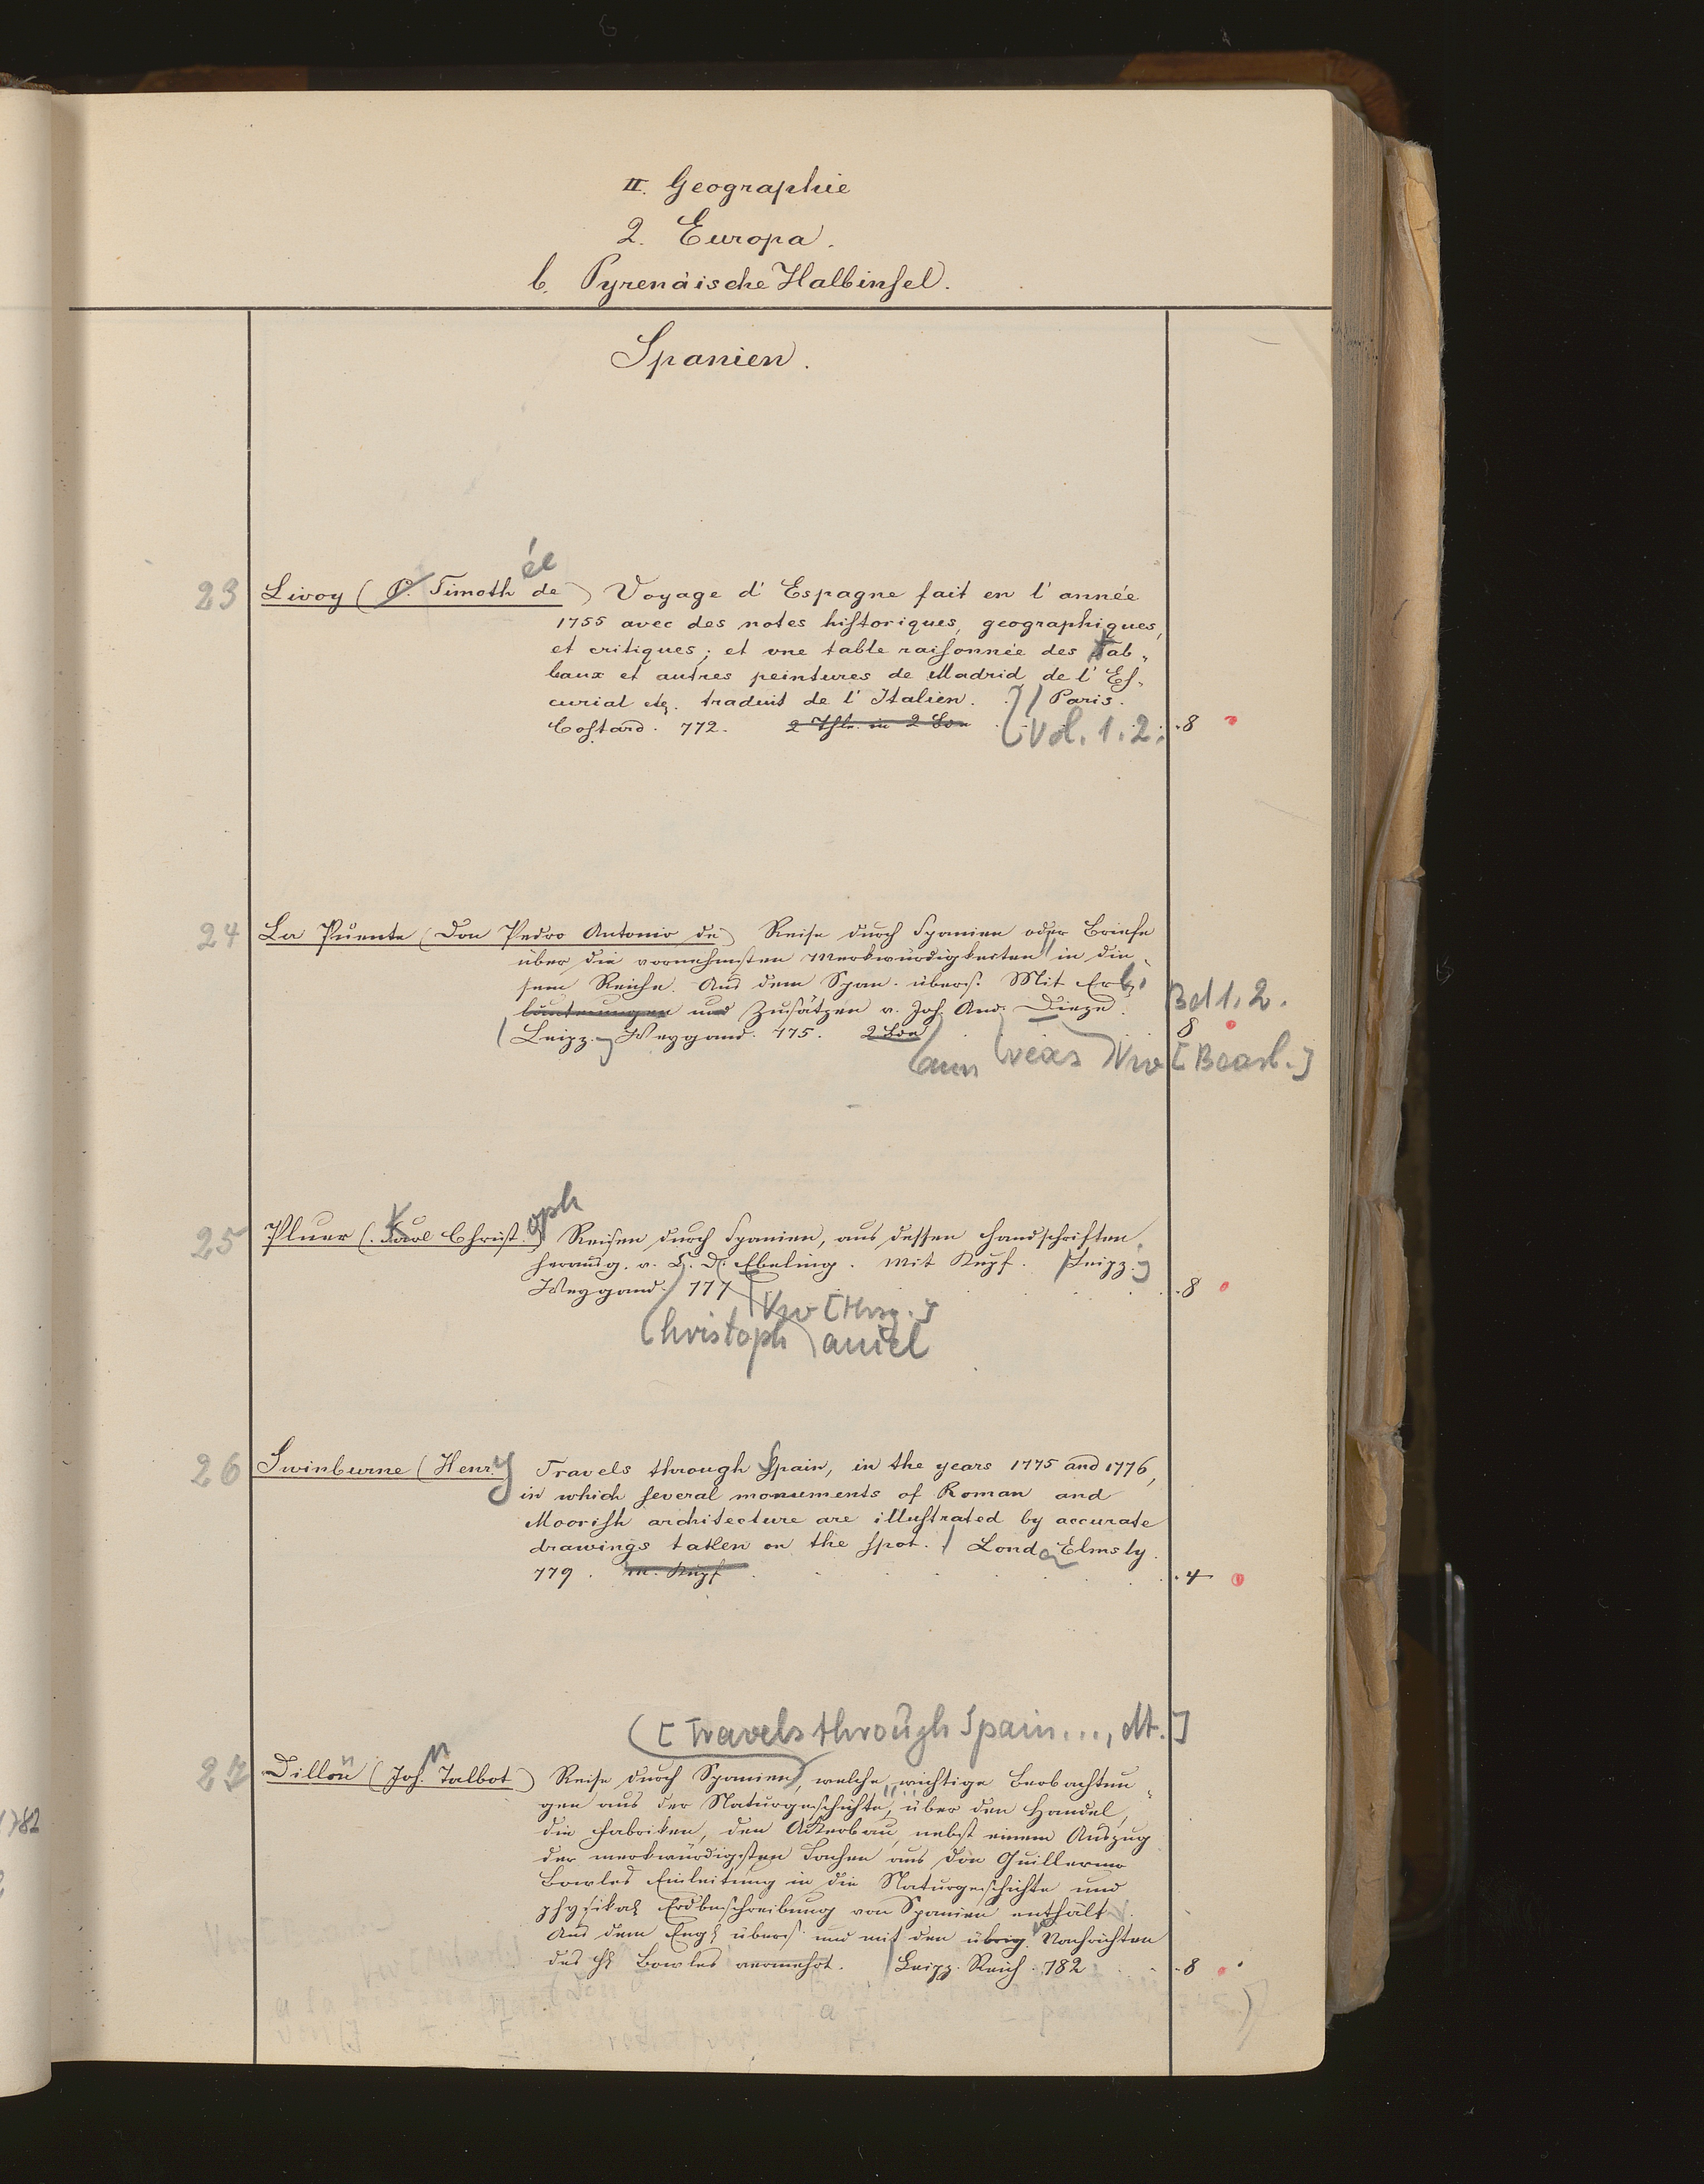 II. Geographie
2. Europa.
b. Pyrenäische Halbinsel.
Spanien.
23 Livoy (P. Timoth ée de) Voyage d' Espagne fait en l' année
1755 avec des notes historiques, geographiques,
et critiques; et une table raisonnée des Tab-
leaux et autres peintures de Madrid de l' Es-
curial etc. traduit de l' Italien. Paris.
Costard. 772. 2 Thle. in 2 Bde Vol. 1.2. 8
24 La Puente (Don Pedro Antonio de) Reise durch Spanien oder Briefe
über die vornehmsten Merkwürdigkeiten in die-
sem Reiche. Aus dem Span. übers. Mit Erl.
läuterungen und Zusätzen v. Joh. And. Dieze. Bd 1.2.
Leipz. Weygand. 775. 2 Bde 8
ann reas Vw [Bearb.]
25 Pluer (Karl Christ. oph) Reisen durch Spanien, aus dessen Handschriften
herausg. v. C. D. Ebeling. Mit Kupf. Leipz.
Weygand. 777 8
Vw [Hrsg.]
Christoph aniel
26 Swinburne (Henry Travels through Spain, in the years 1775 and 1776,
in which several monuments of Roman and
Moorish architecture are illustrated by accurate
drawings taken on the spot. Lond. Elmsly.
779. m. Kupf 4
[Travels through Spain..., dt.]
27 Dillon (Joh. n Talbot) Reise durch Spanien, welche wichtige Beobachtun-
gen aus der Naturgeschichte, über den Handel,
die Fabriken, den Ackerbau, nebst einem Auszug
der merkwürdigsten Sachen aus Don Guillermo
Bowles Einleitung in die Naturgeschichte und
physikal. Erdbeschreibung von Spanien enthält.
Aus dem Engl. übers. und mit den übrig. Nachrichten
des H. Bowles vermehrt. Leipz. Reich. 782 8
1782